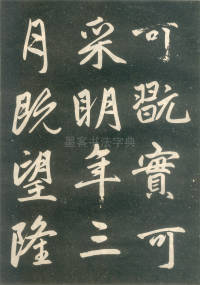 可翫實可
采明年三
月既望隆
墨客书法字典